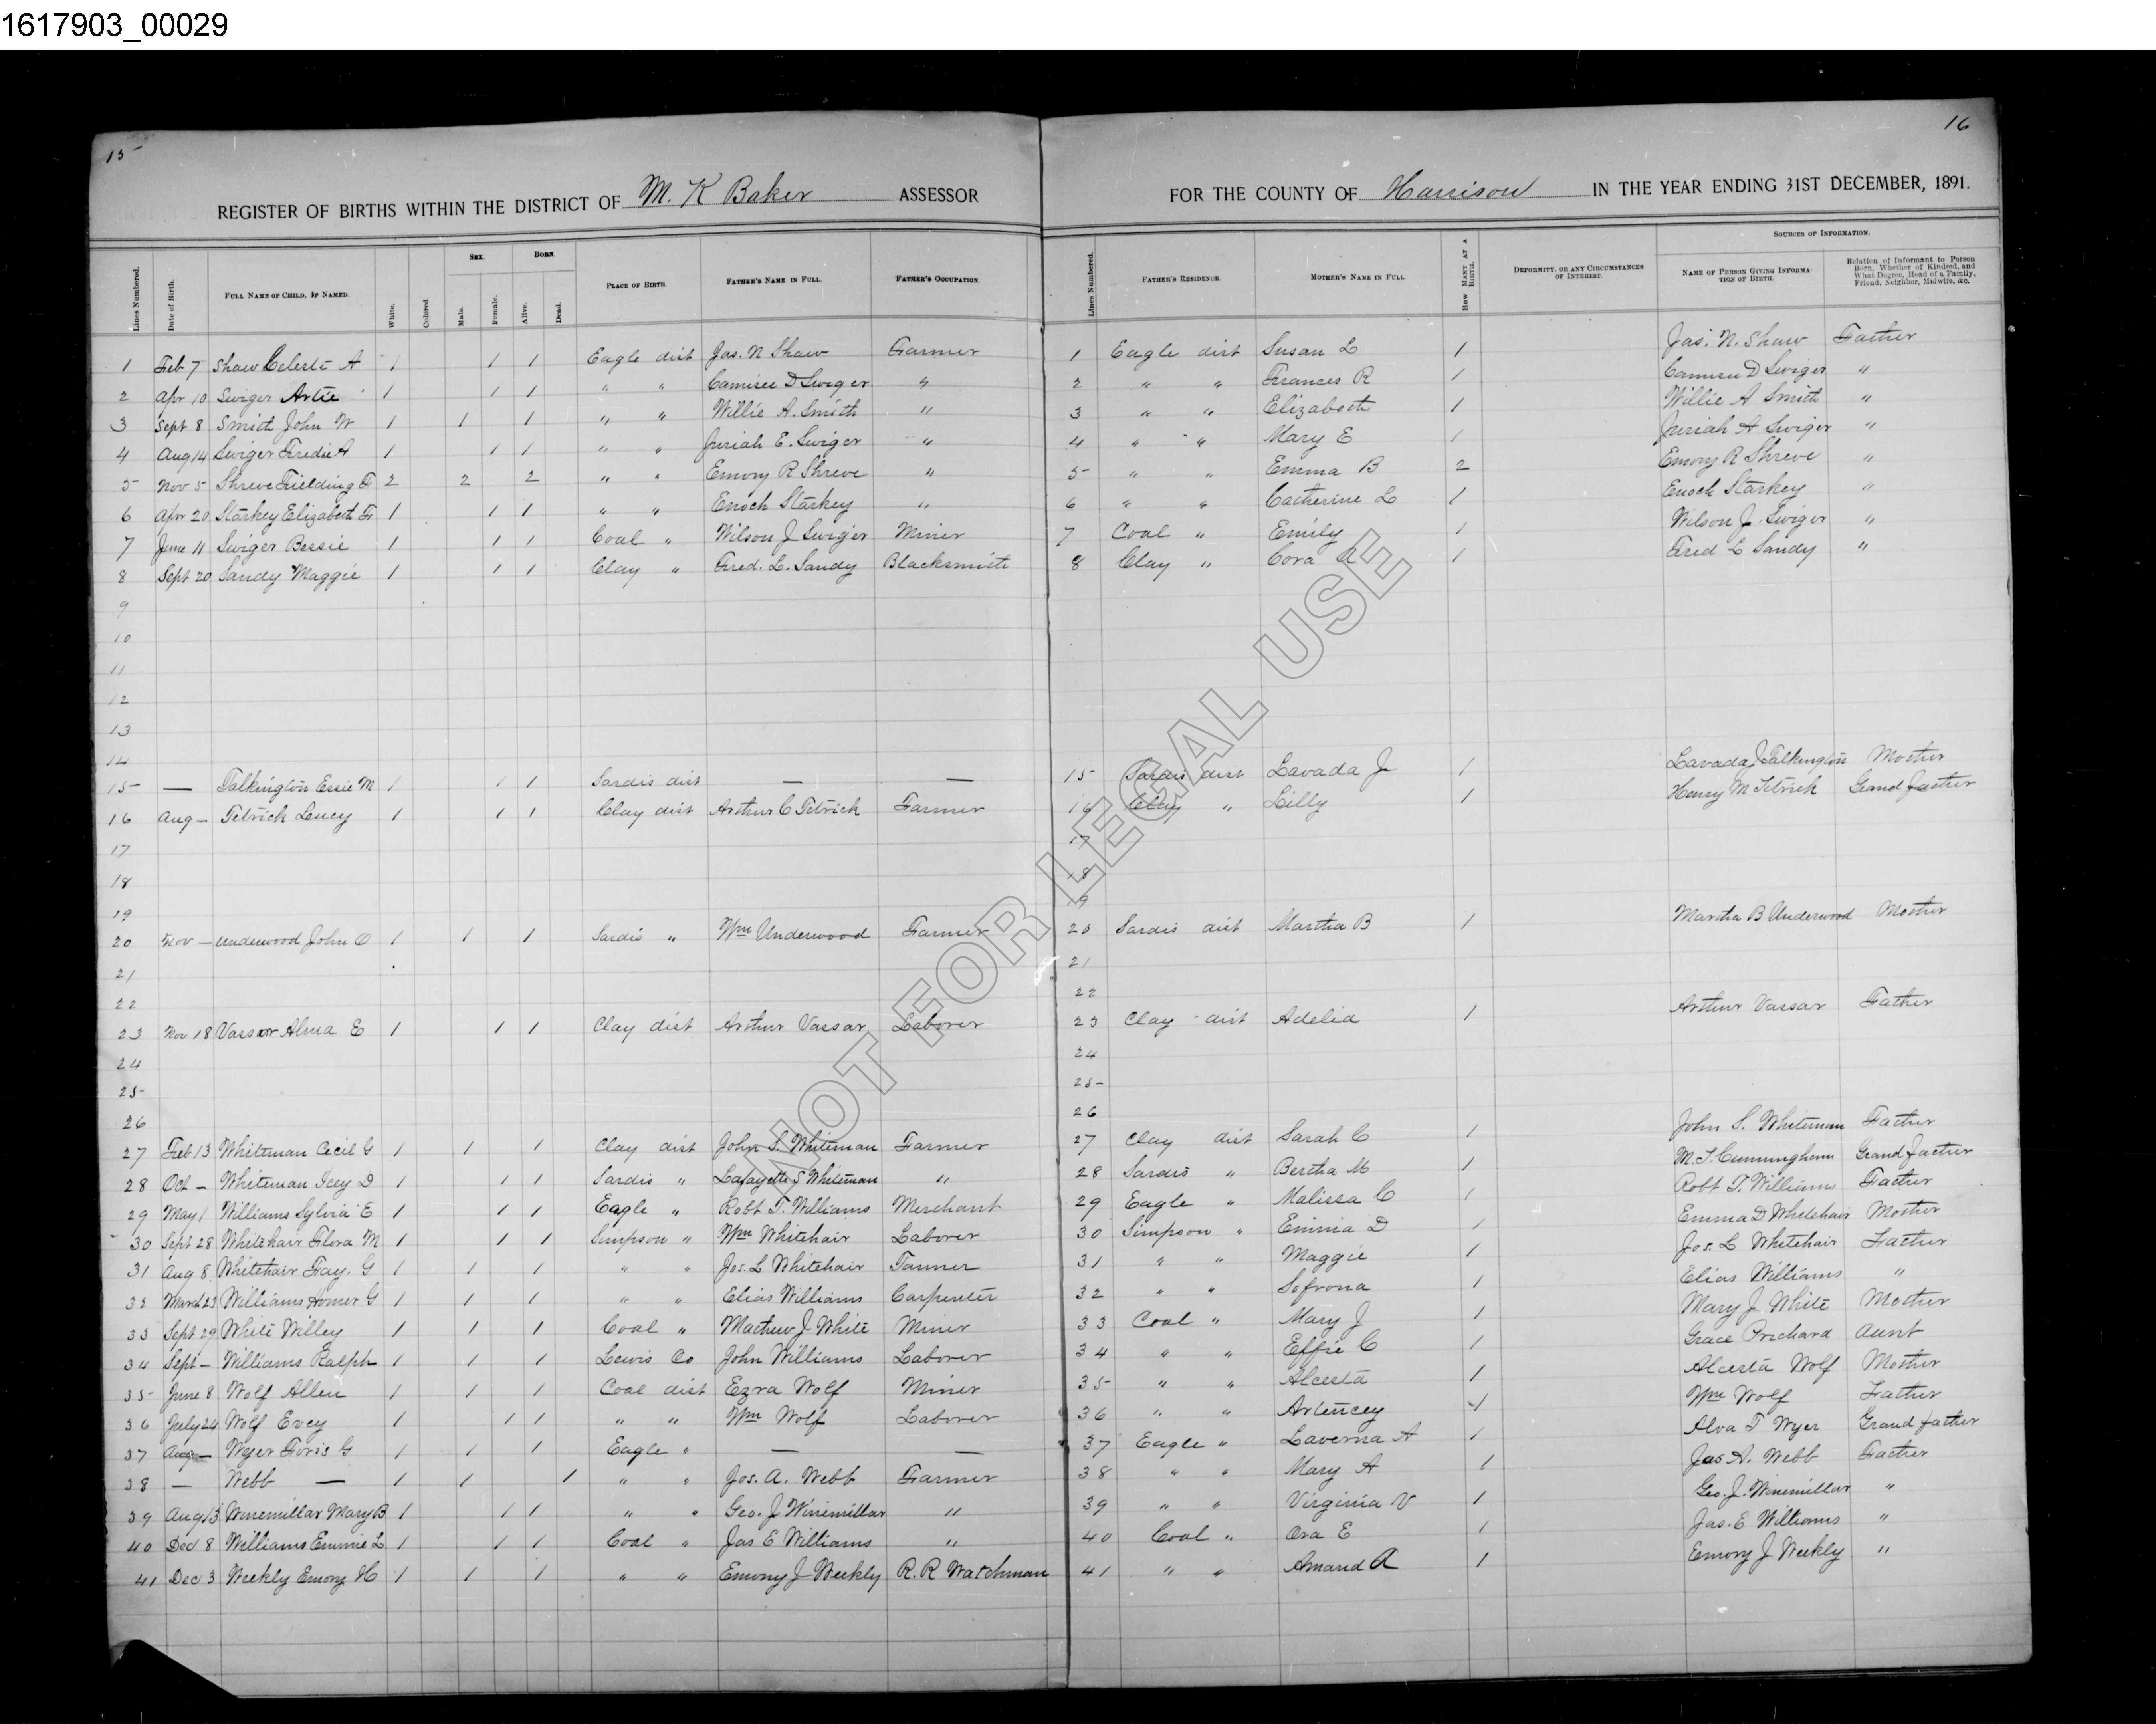 1617903_00029
15
16
REGISTER OF BIRTHS WITHIN THE DISTRICT OF M. K Baker ASSESSOR FOR THE COUNTY OF Harrison IN THE YEAR ENDING 31ST DECEMBER, 1891.
Lines Numbered. Date of Birth. FULL NAME OF CHILD, IF NAMED. White. Colored. SEX. Male. Female. BORN. Alive. Dead. PLACE OF BIRTH. FATHER'S NAME IN FULL. FATHER'S OCCUPATION. Lines Numbered. FATHER'S RESIDENCE. MOTHER'S NAME IN FULL HOW MANY AT A BIRTH. DEFORMITY, OR ANY CIRCUMSTANCES OF INTEREST. SOURCES OF INFORMATION. NAME OF PERSON GIVING INFORMATION OF BIRTH. Relation of Informant to Person Born, Whether of Kindred, and What Degree, Head of a Family, Friend, Neighbor, Midwife, &c.
1 Feb 7 Shaw Celeste A 1 1 1 Eagle dist Jas. N Shaw Farmer 1 Eagle dist Susan L 1 Jas. N. Shaw Father
2 Apr 10 Swiger Artie 1 1 1 " " Camisee D Swiger " 2 " " Frances R 1 Camisee D Swiger "
3 Sept 8 Smith John W 1 1 1 " " Willie A. Smith " 3 " " Elizabeth 1 Willie A Smith "
4 Aug 14 Swiger Fredie A 1 1 1 " " Juriah E. Swiger " 4 " " Mary E 1 Juriah A Swiger "
5 Nov 5 Shreve Fielding F 2 2 2 " " Emory R Shreve " 5 " " Emma B 2 Emory R Shreve "
6 Apr 20 Starkey Elizabeth F 1 1 1 " " Enoch Starkey " 6 " " Catherine L 1 Enoch Starkey "
7 June 11 Swiger Bessie 1 1 1 Coal " Wilson J Swiger Miner 7 Coal " Emily 1 Wilson J. Swiger "
8 Sept 20 Sandy Maggie 1 1 1 Clay " Fred. L. Sandy Blacksmith 8 Clay " Cora A 1 Fred L Sandy "
9
10
11
12
13
14
15 — Talkington Essie M 1 1 1 Sardis dist — — 15 Sardis dist Lavada J 1 Lavada J Talkington Mother
16 Aug — Tetrick Lucy 1 1 1 Clay dist Arthur C Tetrick Farmer 16 Clay " Lilly 1 Henry M Tetrick Grand father
17 17
18 18
19 19
20 Nov — Underwood John O 1 1 1 Sardis " Wm Underwood Farmer 20 Sardis dist Martha B 1 Martha B Underwood Mother
21 21
22 22
23 Nov 18 Vassar Alma E 1 1 1 Clay dist Arthur Vassar Laborer 23 Clay dist Adelia 1 Arthur Vassar Father
24 24
25 25
26 26
27 Feb 13 Whiteman Cecil G 1 1 1 Clay dist John S. Whiteman Farmer 27 Clay dist Sarah C 1 John S. Whiteman Father
28 Oct — Whiteman Icey D 1 1 1 Sardis " Lafayette S Whiteman " 28 Sardis " Bertha M 1 M. T. Cunningham Grand father
29 May 1 Williams Sylvia E 1 1 1 Eagle " Robt T. Williams Merchant 29 Eagle " Malissa C 1 Robt T. Williams Father
30 Sept 28 Whitehair Flora M 1 1 1 Simpson " Wm Whitehair Laborer 30 Simpson " Emma D 1 Emma D Whitehair Mother
31 Aug 8 Whitehair Fay. G 1 1 1 " " Jos. L Whitehair Tanner 31 " " Maggie 1 Jos. L Whitehair Father
32 March 23 Williams Homer G 1 1 1 " " Elias Williams Carpenter 32 " " Sofrona 1 Elias Williams "
33 Sept 29 White Willey 1 1 1 Coal " Mathew J White Miner 33 Coal " Mary J 1 Mary J White Mother
34 Sept — Williams Ralph 1 1 1 Lewis Co John Williams Laborer 34 " " Effie C 1 Grace Prichard Aunt
35 June 8 Wolf Allen 1 1 1 Coal dist Ezra Wolf Miner 35 " " Alcesta 1 Alcesta Wolf Mother
36 July 24 Wolf Evey 1 1 1 " " Wm Wolf Laborer 36 " " Artencey 1 Wm Wolf Father
37 Aug — Wyer Foris G 1 1 1 Eagle " — — 37 Eagle " Laverna A 1 Alva T Wyer Grand father
38 — Webb — 1 1 1 " " Jos. A. Webb Farmer 38 " " Mary A 1 Jas A. Webb Father
39 Aug 13 Winemillar Mary B 1 1 1 " " Geo. J Winemillar " 39 " " Virginia V 1 Geo. J. Winemillar "
40 Dec 8 Williams Emmie L 1 1 1 Coal " Jas E Williams " 40 Coal " Ora E 1 Jas. E Williams "
41 Dec 3 Weekly Emory H 1 1 1 " " Emory J Weekly R. R Watchman 41 " " Amand A 1 Emory J Weekly "
NOT FOR LEGAL USE